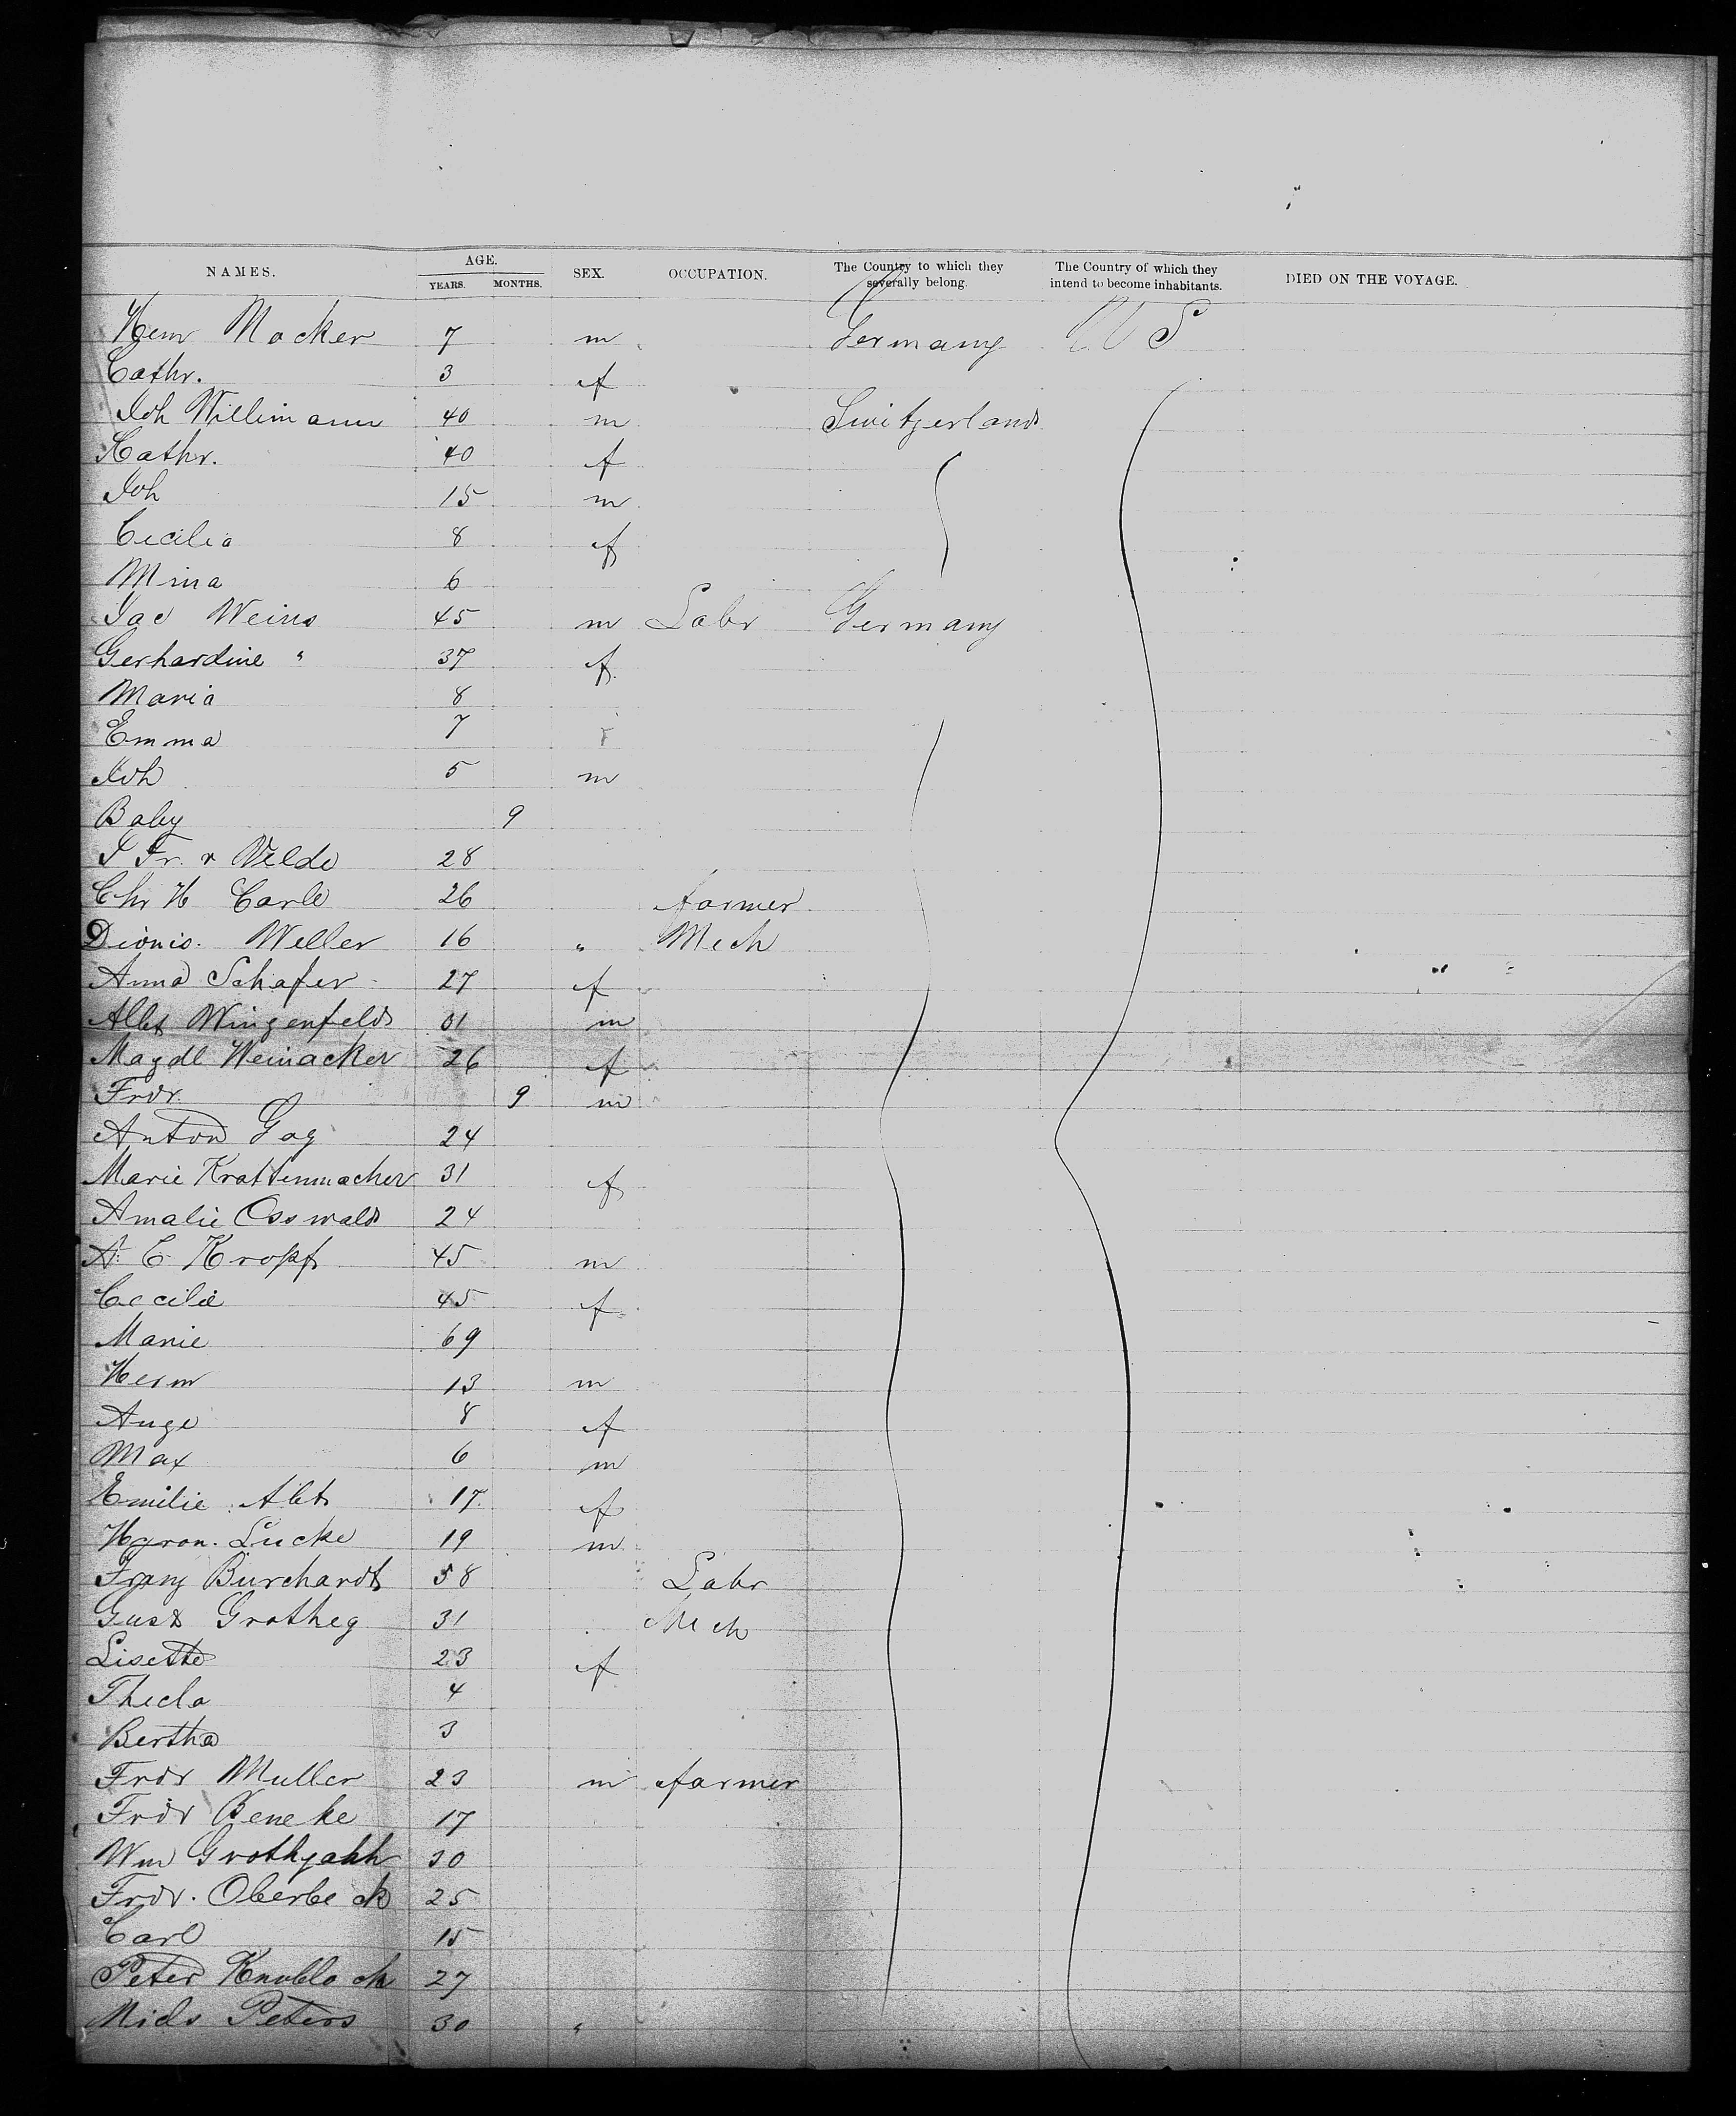 NAMES. AGE. YEARS. MONTHS. SEX. OCCUPATION. The Country to which they severally belong. The Country of which they intend to become inhabitants. DIED ON THE VOYAGE.
Henr Mocker 7 m Germany U S
Cathr. 3 f
Joh Willimann 40 m Switzerland
Kathr. 40 f
Joh 15 m
Cecilia 8 f
Mina 6
Jac Weins 45 m Labr Germany
Gerhardine " 37 f
Maria 8
Emma 7
Joh 5 m
Baby 9
J Fr. v Velde 28
Chr H Carle 26 farmer
Dionis. Weller 16 " Mech
Anna Schafer 27 f
Albt Wingenfeld 01 m
Magdl Weinacker 26 f
Frdr. 9 m
Anton Gag 24
Marie Krattenmacher 31 f
Amalie Osswald 24
A. C Kropf 45 m
Cecilie 45 f
Marie 69
Herm 13 m
Auge 8 f
Max 6 m
Emilie Albt 17 f
Hyron. Lucke 19 m
Franz Burchardt 58 Labr
Gust Grotheg 31 Mech
Lisette 23 f
Thecla 4
Bertha 3
Frdr Muller 23 m farmer
Frdr Beneke 17
Wm Grothjahh 30
Frdr. Oberbeck 25
Carl 15
Peter Knobloch 27
Niels Peters 30 "